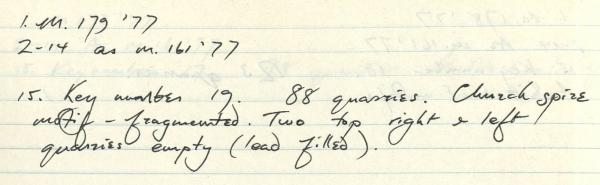 1. M. 179 '77
2-14 as m. 161 '77
15. Key number 19. 88 quarries. Church spire
motif - fragmented. Two top right & left
quarries empty (lead filled).